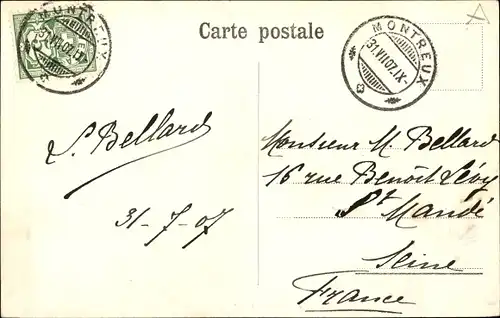 Carte postale
MONTREUX
31.VII.07.IX-
MONTREUX
31.VII.07.IX-
S. Bellard
31-7-07
Monsieur M. Bellard
16 rue Benoît Lévy
St Mandé
Seine
France